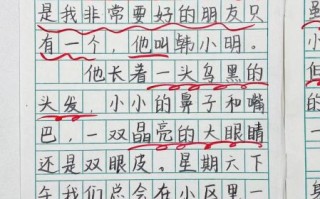 是我非常要好的朋友只
有一个，他叫韩小明。
他长着一头乌黑的
头发，小小的鼻子和嘴
巴，一双晶亮的大眼睛
还是双眼皮。星期六下
午我们总会在小区里一
虽
但
身